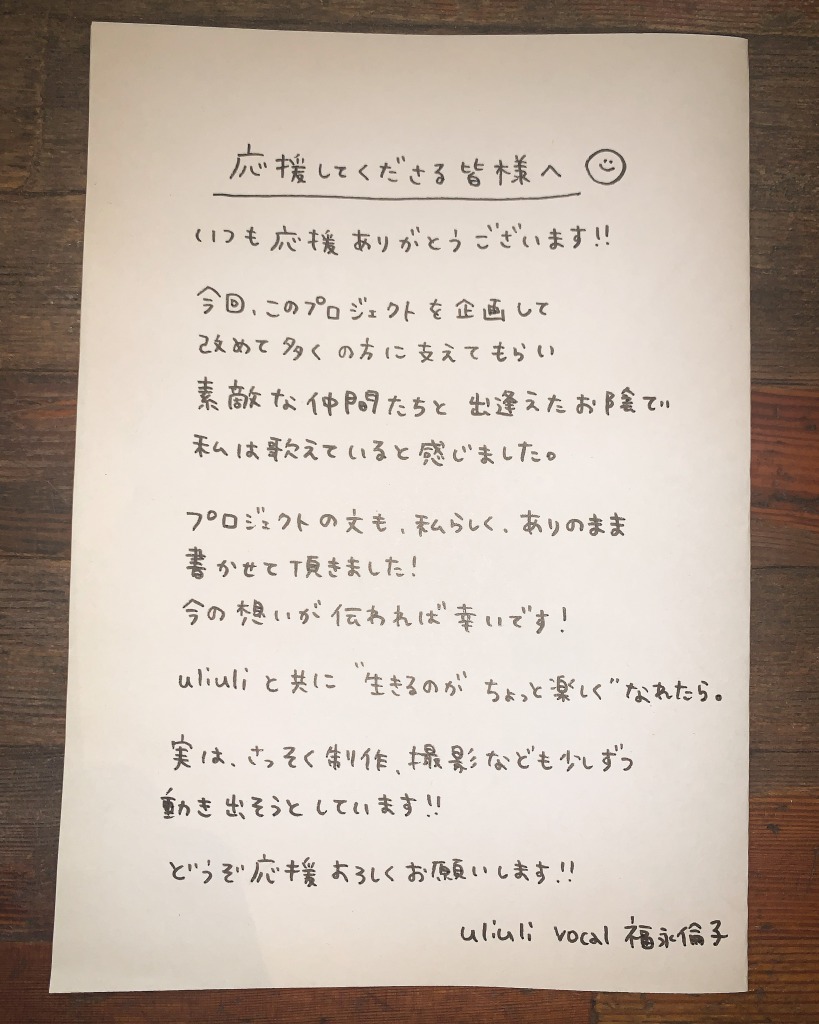 応援してくださる皆様へ
いつも応援ありがとうございます!!
今回、このプロジェクトを企画して
改めて多くの方に支えてもらい
素敵な仲間たちと出逢えたお陰で
私は歌えていると感じました。
プロジェクトの文も、私らしく、ありのまま
書かせて頂きました!
今の想いが伝われば幸いです!
uliuliと共に"生きるのがちょっと楽しく"なれたら。
実は、さっそく制作、撮影なども少しずつ
動き出そうとしています!!
どうぞ応援よろしくお願いします!!
uliuli vocal 福永倫子